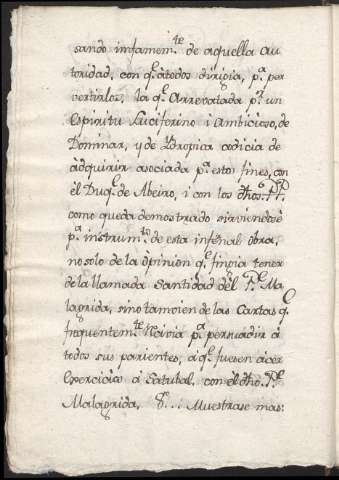 sando infamem.te de aquella au
toridad, con q.e átodos dirigia, p.a per
vertirlos, la q.e Arrevatada p.r un
Espiritu Luciferino i Ambicioso, de
Dominar, y de Ydropica codicia de
adquirir asociada p.a estos fines, con
él Duq.e de Abeiro, i con los dhos. P.P.
como queda demostrado sirviendose
p.a instrum.to de esta infernal obra,
no solo de la ópinion q.e fingia tener
de la llamada Santidad dél P.e Ma
lagrida, sino tamvien de las Cartas q.e
frequentem.te escrivia p.a persuadir á
todos sus parientes, á q.e fuesen á cer
Exercicios á Satubal, con él dho. P.e
Malagrida, &.... Muestrase mas: